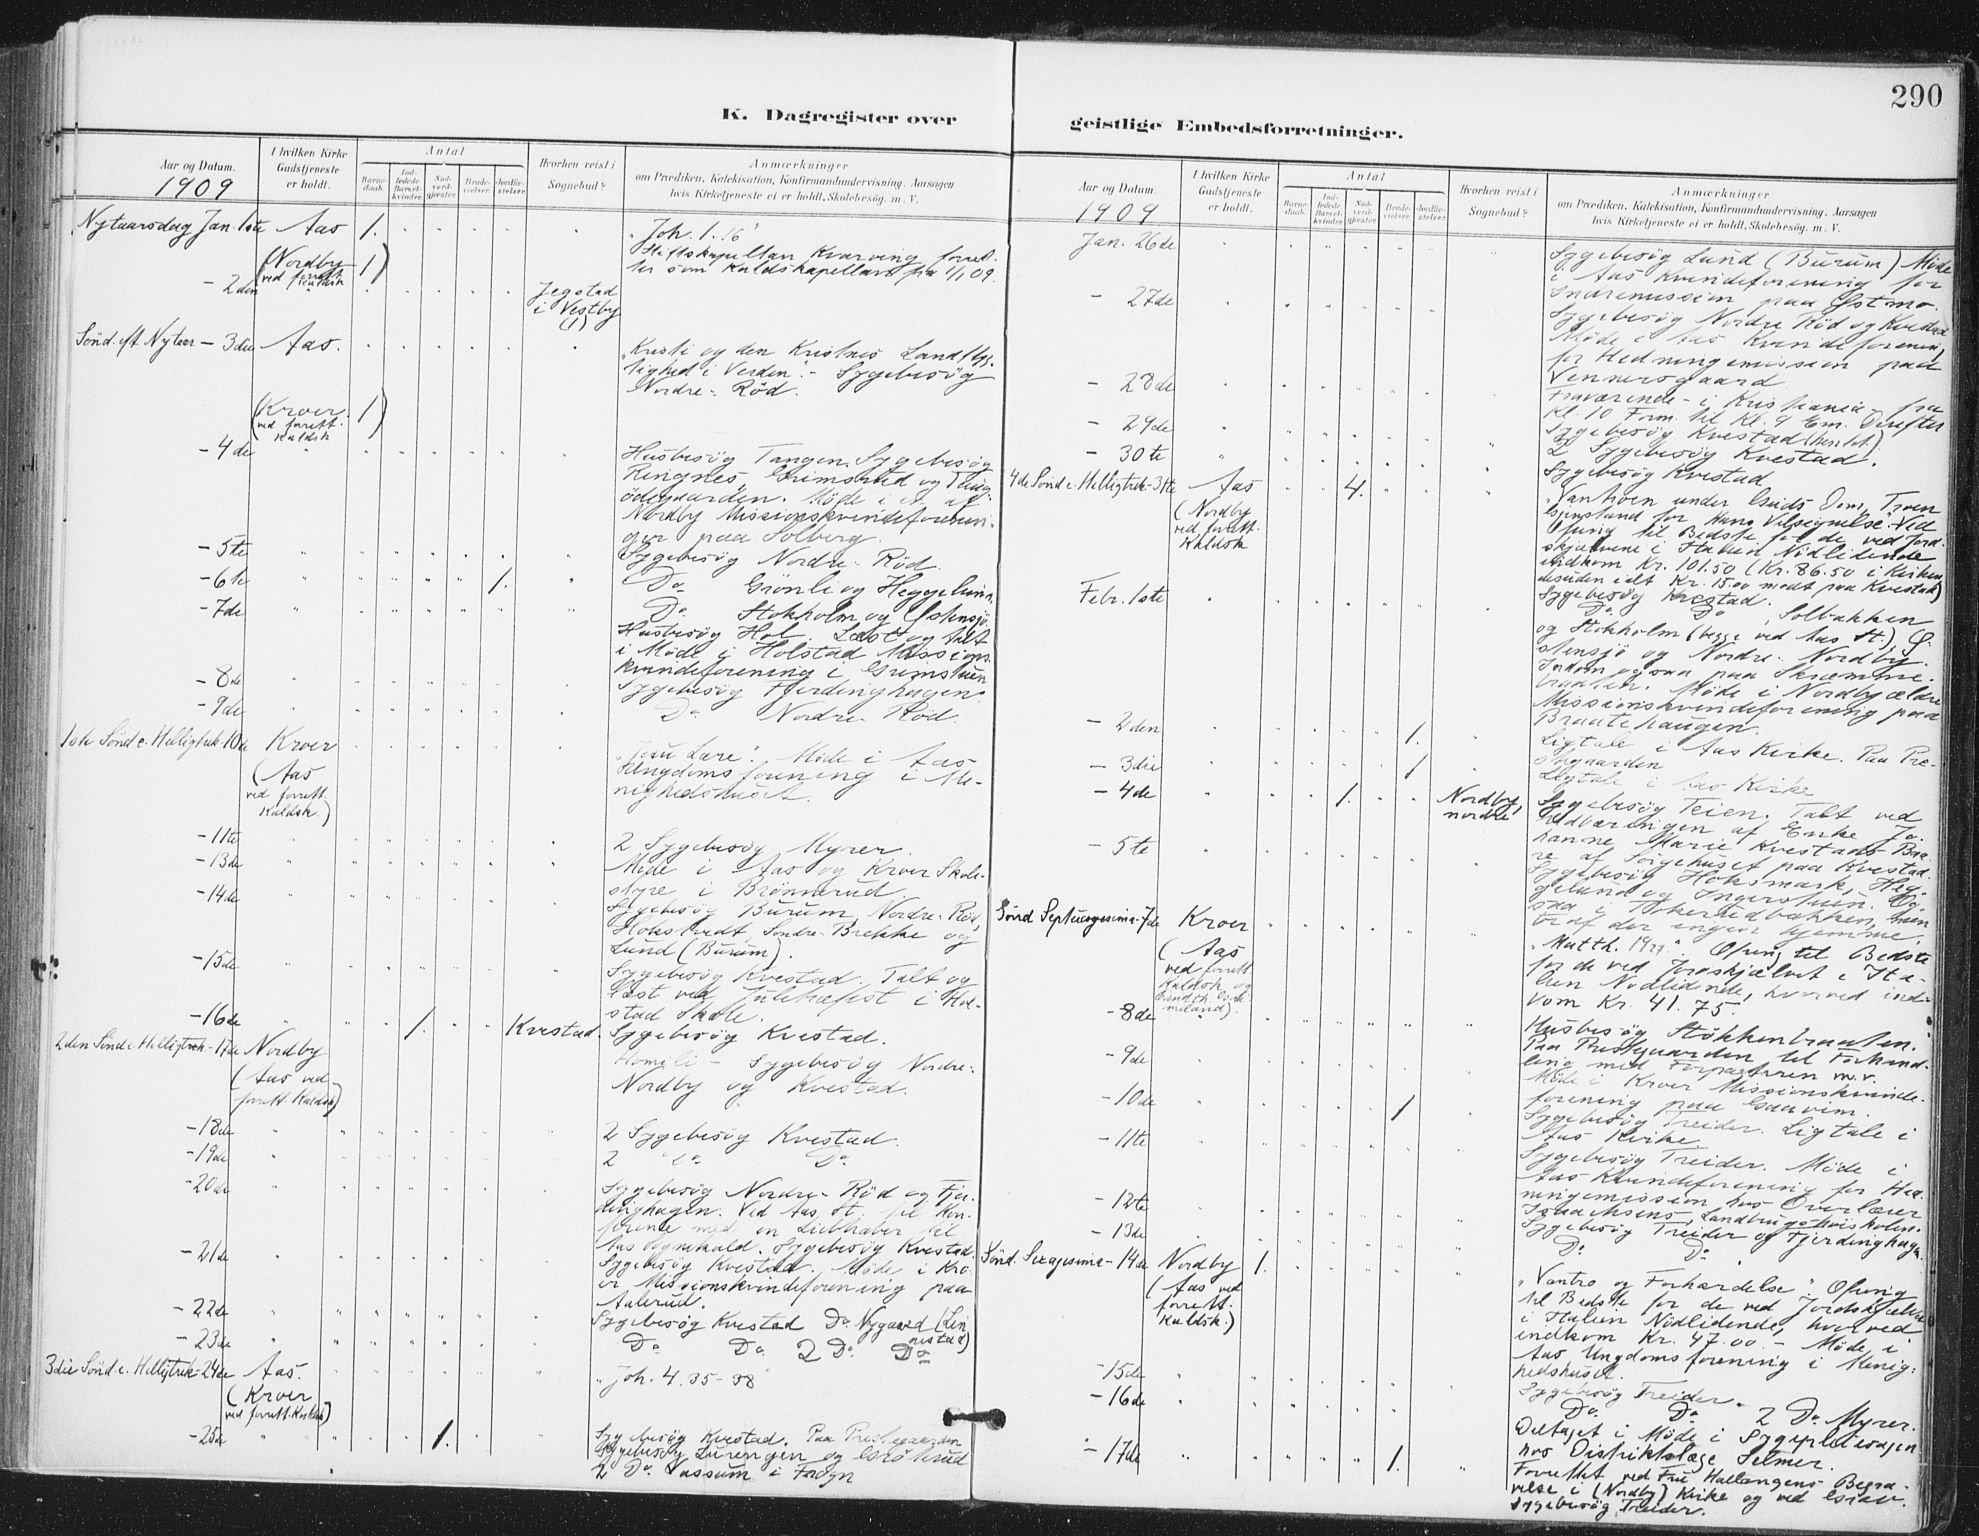 290
K. Dagregister over
geistlige Embedsforretninger.
Aar og Datum.
1909
I hvilken Kirke
Gudstjeneste
er holdt.
Antal
Barne-
daab.
Ind-
ledede
Barsel-
kvinder
Nad-
verd-
gjester
Brude-
vielser.
Jordfæ-
stelser.
Hvorhen reist i
Sognebud?
Anmærkninger
om Prædiken, Katekisation, Konfirmandundervisning. Aarsagen
hvis Kirketjeneste ei er holdt. Skolebesøg. m. V.
Nytaarsdag Jan. 1ste Aas 1. "Joh. 1. 16"
(Nordby 1) Stiftskapellan Kvarving forret-
ved forrett. Kaldsk ter som Kaldskapellan fra 1/1 09.
- 2den Jegstad
i Vestby
(1)
Sønd. eft Nytaar - 3die Aas. "Kristi og den Kristnes Landflyg-
tighed i Verden". - Sygebesøg
Nordre-Rød.
(Kroer 1)
ved forrett.
Kaldsk
- 4de Husbesøg Tangen. Sygebesøg
Ringnes, Grimsrud og
ødegaarden. Møde i et af
Nordby Missionskvindeforenin-
ger paa Solberg.
- 5te Sygebesøg Nordre-Rød.
- 6te 1. Do Grønli og Heggelund.
- 7de Do Stokholm og Østensjø.
Husbesøg Hol. Læst og talt
i Møde i Holstad Missions-
kvindeforening i Grimstuen
- 8de Sygebesøg Fjerdinghagen.
- 9de Do Nordre-Rød.
1ste Sønd e. Helligtrek. 10de Kroer "Jesu Lære". Møde i Aas
(Aas Ungdomsforening i Me-
ved forrett. nighedshuset.
Kaldsk.)
- 11te 2 Sygebesøg Myrer.
- 13de Møde i Aas og Kroer Skole-
styre i Brønnerud
- 14de Sygebesøg Burum, Nordre-Rød,
Holstvedt Søndre-Brekke og
Lund (Burum).
- 15de Sygebesøg Kvestad. Talt og
læst ved Juletræfest i Hol-
stad Skole.
- 16de 1. Kvestad. Sygebesøg Kvestad.
2den Sønd e. Helligtrek - 17de Nordby Homili - Sygebesøg Nordre-
(Aas ved Nordby og Kvestad.
forrett. Kaldsk)
- 18de 2 Sygebesøg Kvestad.
- 19de 2 Do Do
- 20de Sygebesøg Nordre-Rød og Fjer-
dinghagen. Ved Aas St. til Kon-
ferense med en Liebhaber til
Aas Sognekald. Sygebesøg Kvestad.
- 21de Sygebesøg Kvestad. Møde i Kro-
er Missionskvindeforening paa
Aalerud.
- 22de Sygebesøg Kvestad Do Nygaard (Lin
gestad)
- 23de Do Do 2 Do Do
3die Sønd e. Helligtrek - 24de Aas. "Joh. 4. 35-38"
(Kroer
ved forrett. Kaldsk)
- 25de 1. Sygebesøg Kvestad. Paa Prestegaarden
Sygebesøg Lurengen og
2 Do Sassum i Frogn
Aar og Datum.
1909
I hvilken Kirke
Gudstjeneste
er holdt.
Antal
Barne-
daab.
Ind-
ledede
Barsel-
kvinder
Nad-
verd-
gjester
Brude-
vielser.
Jordfæ-
stelser.
Hvorhen reist i
Sognebud?
Anmærkninger
om Prædiken, Katekisation, Konfirmandundervisning. Aarsagen
hvis Kirketjeneste ei er holdt. Skolebesøg. m. V.
Jan. 26de Sygebesøg Lund (Burum) Møde
i Aas Kvindeforening for
Indremission paa Østmo.
- 27de Sygebesøg Nordre Rød og Kvestad
Møde i Aas Kvindeforening
for Hedningemission paa
Vennersgaard
- 28de Fraværende - i Kristiania - fra
Kl. 10 Form. til Kl. 9 Em. Derefter
- 29de Sygebesøg Kvestad (hentet.)
2 Sygebesøg Kvestad.
- 30te Sygebesøg Kvestad
4de Sønd e. Helligtrek - 31te Aas 4. "Vantroen under Guds Dom, Troen
(Nordby Gjenstand for Hans Velsignelse." Ved
ved forrett. Ofring til Bedste for de ved Jord-
Kaldsk skjælvene i Italien Nødlidende
indkom Kr. 101.50 (Kr. 86.50 i Kirken
desuden ialt Kr. 15.00 modt. paa Kvestad)
Sygebesøg Kvestad.
Febr. 1ste Do Do, Solbakken
og Stokholm (begge ved Aas St.), Ø-
stensjø og Nordre-Nordby.
Indom ogsaa paa Skræmme-
braaten. Møde i Nordby ældre
Missionskvindeforening paa
Braatehaugen.
- 2den 1. Ligtale i Aas Kirke. Paa Pre-
stegaarden
- 3die 1 Ligtale i Aas Kirke
- 4de 1. Nordby, Sygebesøg Teien. Talt ved
nordre Udbæringen af Enke Jo-
hanne Marie Kvestads Baa-
- 5te re af Sørgehuset paa Kvestad.
Sygebesøg Holsmark, Heg-
gelund og Ingerstuen. Og-
saa i men
traf der ingen hjemme.
Sønd Septuagesima - 7de Kroer "Matth. 19" Ofring til Bedste
(Aas for de ved Jordskjælvet i Ita-
ved forrett lien Nødlidende, hvorved ind-
Kaldsk og kom Kr. 41.75.
- 8de Husbesøg Støkkenbraaten.
Paa Prestegaarden til Forhand-
ling med Forpagteren m.v.
- 9de Møde i Kroer Missionskvinde-
forening paa Gaarim.
- 10de 1 Sygebesøg Treider. Ligtale i
Aas Kirke.
- 11te Sygebesøg Treider. Møde i
Aas Kvindeforening for Hed-
ningemission hos Overlærer
Isaachsens, Landbrugshøiskolen.
- 12te Sygebesøg Treider og Fjerdinghagn
- 13de Do Do
Sønd. Sexagesima - 14de Nordby 1. "Vantro og Forhærdelse". Ofring
(Aas ved til Bedste for de ved Jordskjælvet
forrett. i Italien Nødlidende, hvorved
Kaldsk.) indkom Kr. 47.00 - Møde i
Aas Ungdomsforening i Menig-
hedshuset.
- 15de Sygebesøg Treider.
- 16de Do Do 2 Do Myrer.
Deltaget i Møde i Sygepleiesagen
hos Distriktslæge Selmer.
- 17de 1. Forrettet ved Fru Hallangens Begra-
velse i (Nordby) Kirke og ved Grav.
Sygebesøg Treider.